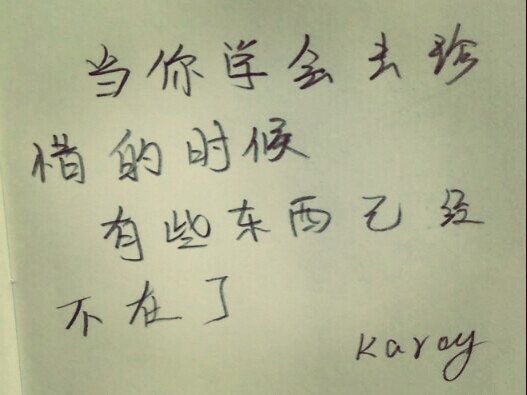 当你学会去珍
惜的时候
有些东西已经
不在了
Karoy